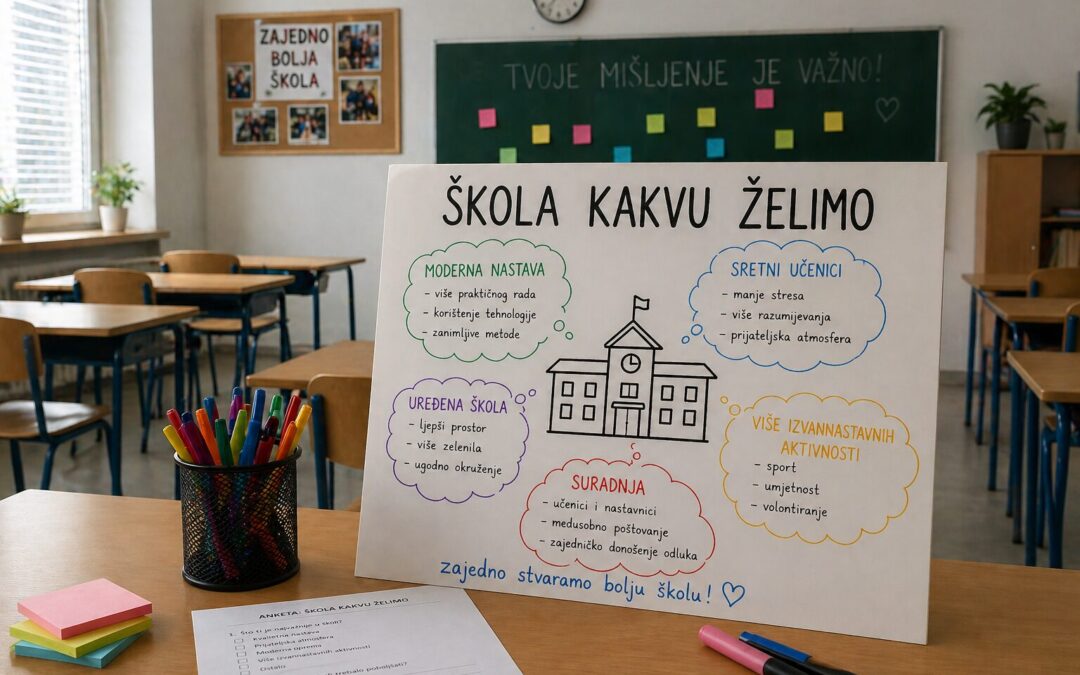 ZAJEDNO
BOLJA
ŠKOLA
TVOJE MIŠLJENJE JE VAŽNO!
ŠKOLA KAKVU ŽELIMO
MODERNA NASTAVA
- više praktičnog rada
- korištenje tehnologije
- zanimljive metode
SRETNI UČENICI
- manje stresa
- više razumijevanja
- prijateljska atmosfera
UREĐENA ŠKOLA
- ljepši prostor
- više zelenila
- ugodno okruženje
VIŠE IZVANNASTAVNIH
AKTIVNOSTI
- sport
- umjetnost
- volontiranje
SURADNJA
- učenici i nastavnici
- medusobno poštovanje
- zajedničko donošenje odluka
zajedno stvaramo bolju školu!
ANKETA: ŠKOLA KAKVU ŽELIMO
1. Što ti je najvažnije u školi?
Kvalitetna nastava
Prijateljska atmosfera
Moderna oprema
Više izvannastavnih aktivnosti
Ostalo
trebalo poboljšati?